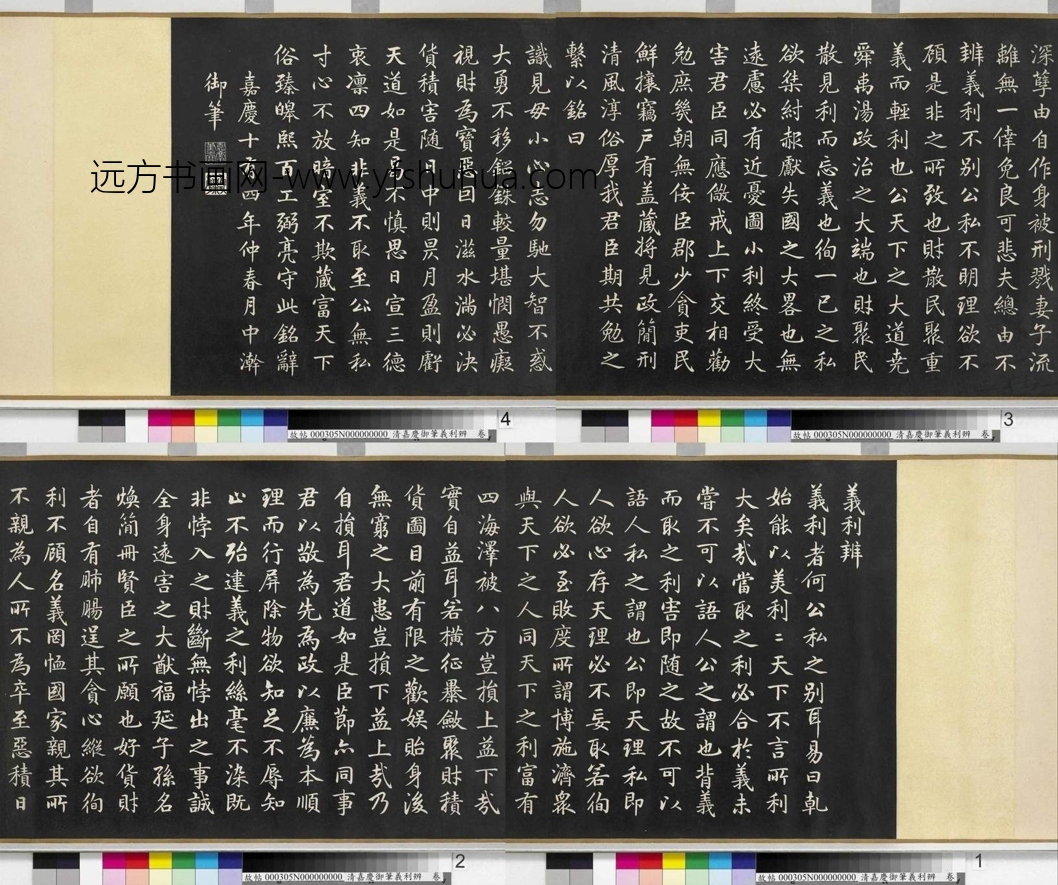 義利辨
義利者何公私之別耳易曰乹
始能以美利二天下不言所利
大矣哉當取之利必合於義未
嘗不可以語人公之謂也背義
而取之利害即随之故不可以
語人私之謂也公即天理私即
人欲心存天理必不妄取若徇
人欲必至敗度所謂博施濟衆
與天下之人同天下之利富有
四海澤被八方豈損上益下哉
實自益耳若橫征暴斂聚財積
貨圖目前有限之歡娱貽身後
無窮之大患豈損下益上哉乃
自損耳君道如是臣節亦同事
君以敬為先為政以廉為本順
理而行屏除物欲知足不辱知
止不殆違義之利絲毫不染既
非悖入之財斷無悖出之事誠
全身遠害之大猷福延子孫名
煥簡冊賢臣之所願也好貨財
者自有肺腸逞其貪心縱欲徇
利不顧名義罔恤國家親其所
不親為人所不為卒至惡積日
深孽由自作身被刑戮妻子流
離無一倖免良可悲夫總由不
辨義利不別公私不明理欲不
顧是非之所致也財散民聚重
義而輕利也公天下之大道堯
舜禹湯政治之大端也財聚民
散見利而忘義也徇一己之私
欲桀紂赧獻失國之大畧也無
遠慮必有近憂圖小利終受大
害君臣同應儆戒上下交相勸
勉庶幾朝無佞臣郡少貪吏民
鮮攘竊戶有盖蔵將見政簡刑
清風淳俗厚我君臣期共勉之
繫以銘曰
識見毋小心志勿馳大智不惑
大勇不移錙銖較量堪憫愚癡
視財為寶惡因日滋水滿必決
貨積害随日中則昃月盈則虧
天道如是畏不慎思日宣三德
衷凛四知非義不取至公無私
寸心不放暗室不欺蔵富天下
俗臻皞熙百工弼亮守此銘辭
嘉慶十有四年仲春月中澣
御筆
远方书画网-www.yfshuhua.com
4
故帖 000305N000000000 清嘉慶御筆義利辨 卷
3
故帖 000305N000000000 清嘉慶御筆義利辨 卷
2
故帖 000305N000000000 清嘉慶御筆義利辨 卷
1
故帖 000305N000000000 清嘉慶御筆義利辨 卷